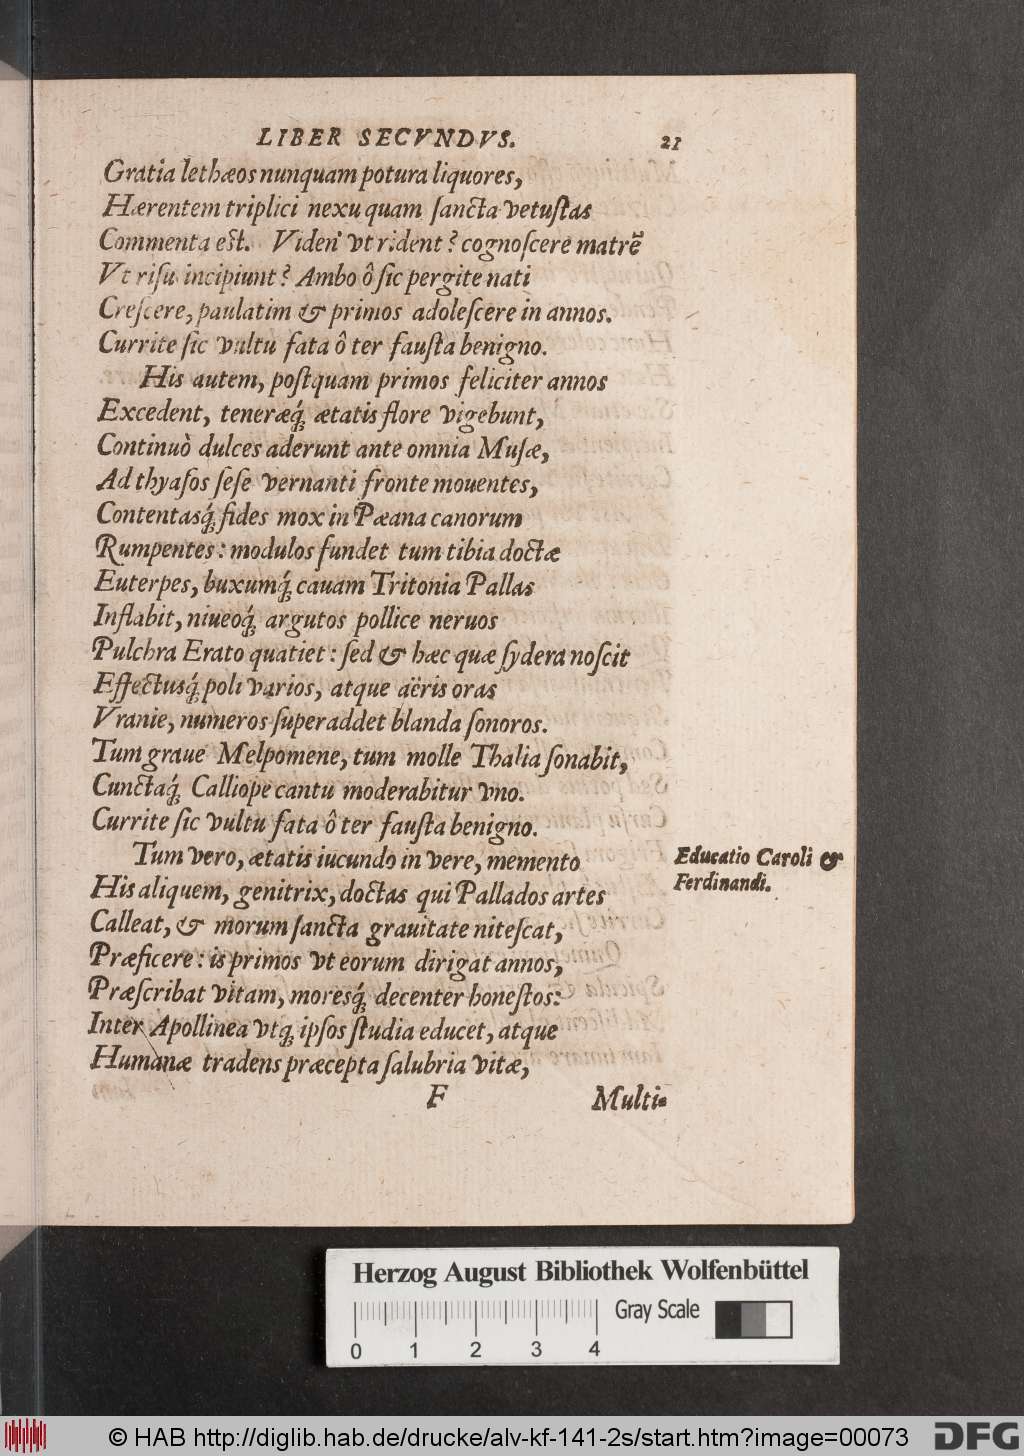 LIBER SECVNDVS. 21
Gratia lethæos nunquam potura liquores,
Hærentem triplici nexu quam ſancta vetuſtas
Commenta eſt. Viden' vt rident? cognoſcere matrẽ
Vt riſu incipiunt? Ambo ô ſic pergite nati
Creſcere, paulatim & primos adoleſcere in annos.
Currite ſic vultu fata ô ter fauſta benigno.
His autem, poſtquam primos feliciter annos
Excedent, teneræq́; ætatis flore vigebunt,
Continuò dulces aderunt ante omnia Muſæ,
Ad thyaſos ſeſe vernanti fronte mouentes,
Contentasq́; fides mox in Pæana canorum
Rumpentes: modulos fundet tum tibia doctæ
Euterpes, buxumq́; cauam Tritonia Pallas
Inflabit, niueoq́; argutos pollice neruos
Pulchra Erato quatiet: ſed & hæc quæ ſydera noſcit
Effectusq́; poli varios, atque aëris oras
Vranie, numeros ſuperaddet blanda ſonoros.
Tum graue Melpomene, tum molle Thalia ſonabit,
Cunctaq́; Calliope cantu moderabitur vno.
Currite ſic vultu fata ô ter fauſta benigno.
Tum vero, ætatis iucundo in vere, memento
Educatio Caroli &
Ferdinandi.
His aliquem, genitrix, doctas qui Pallados artes
Calleat, & morum ſancta grauitate niteſcat,
Præficere: is primos vt eorum dirigat annos,
Præſcribat vitam, moresq́; decenter honeſtos:
Inter Apollinea vtq; ipſos ſtudia educet, atque
Humanæ tradens præcepta ſalubria vitæ,
F Multi-
Herzog August Bibliothek Wolfenbüttel
Gray Scale
0 1 2 3 4
© HAB http://diglib.hab.de/drucke/alv-kf-141-2s/start.htm?image=00073
DFG